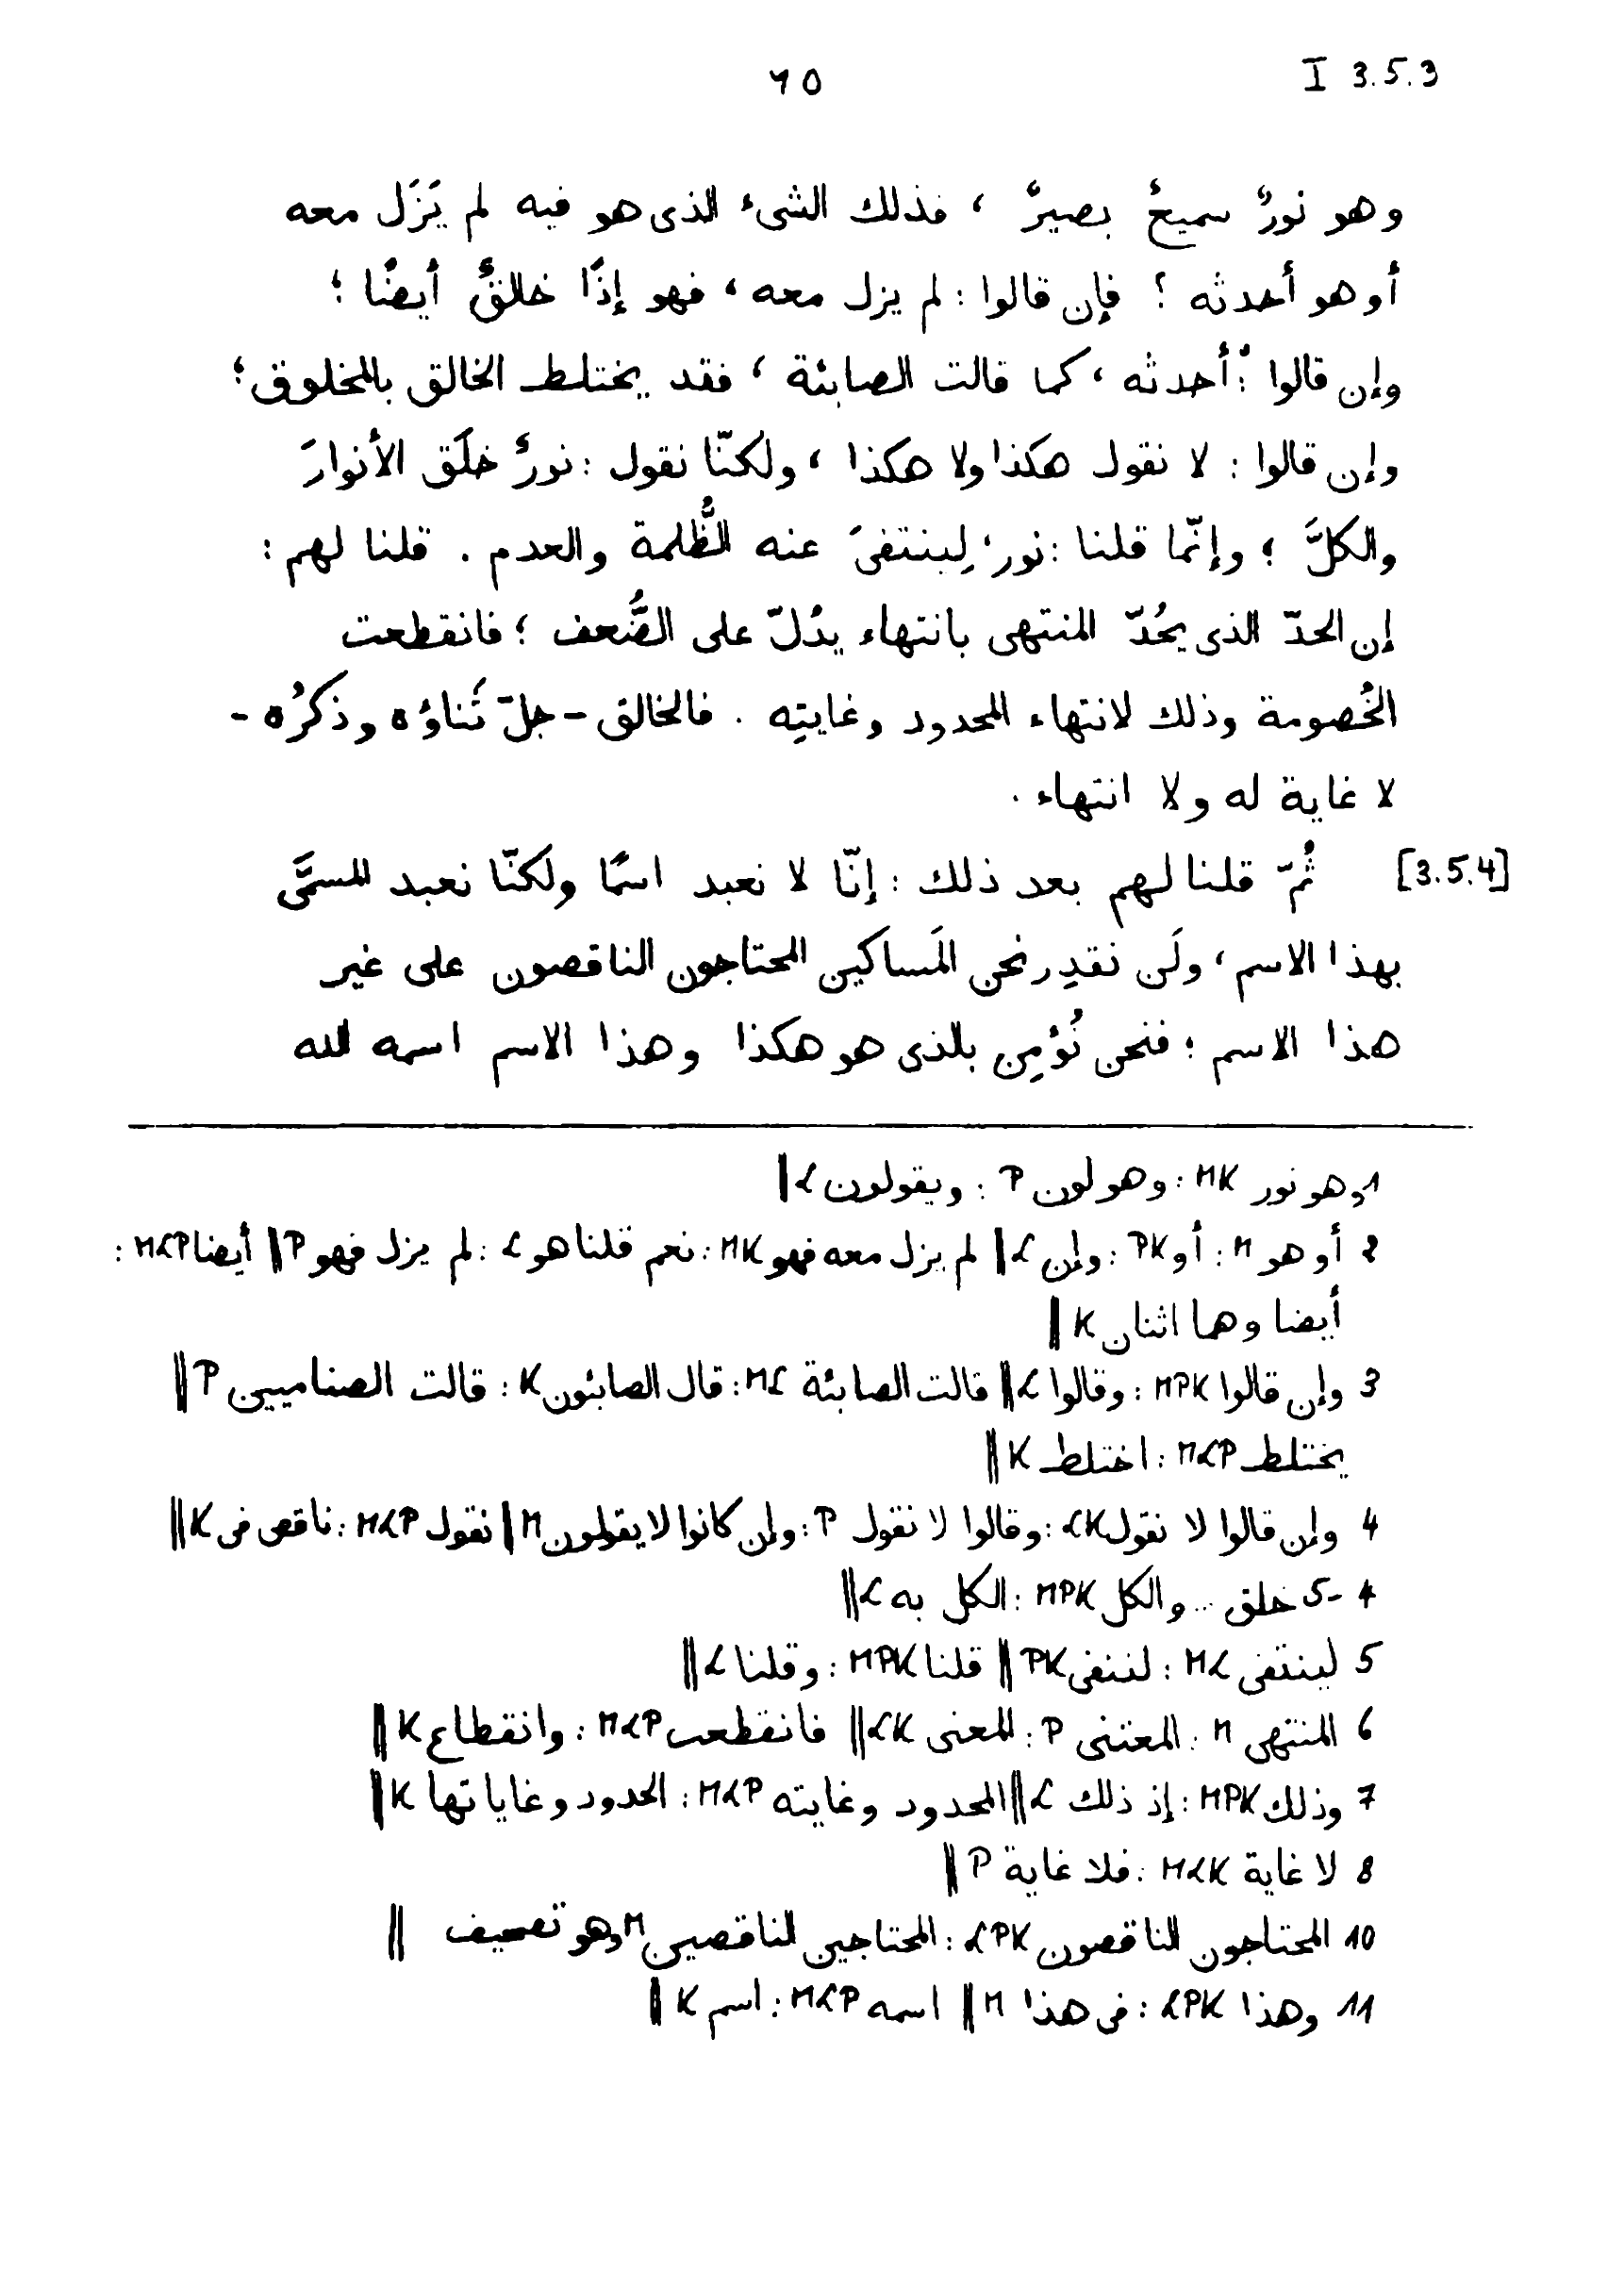 ٦٥ I 3.5.3
وهو نورٌ سميعٌ بصيرٌ ، فذلك الشىء الذى هو فيه لم يَزَل معه
أو هو أحدثه ؟ فإن قالوا : لم يزل معه ، فهو إذًا خالقٌ أيضًا ؛
وإن قالوا : أُحدثه ، كما قالت الصابئة ، فقد يختلط الخالق بالمخلوق ؛
وإن قالوا : لا نقول هكذا ولا هكذا ، ولكنّا نقول : نورٌ خلَق الأنوارَ
والكلَّ ؛ وإنّما قلنا : نور ، لِينتفىَ عنه الظُّلمة والعدم . قلنا لهم :
إن الحدّ الذى يحُدّ المنتهى بانتهاء يدُلّ على الضُّعف ؛ فانقطعت
الخُصومة وذلك لانتهاء المحدود وغايتِه . فالخالق - جلّ ثَناؤه وذكرُه -
لا غاية له ولا انتهاء .
[3.5.4] ثُمّ قلنا لهم بعد ذلك : إنّا لا نعبد اسمًا ولكنّا نعبد المسمَّى
بهذا الاسم ، ولَن نقدِر نحن المَساكين المحتاجون الناقصون على غير
هذا الاسم ؛ فنحن نُؤمِن بالذى هو هكذا وهذا الاسم اسمه الله
1 وهو نور MK : وهو لون P : ويقولون L ||
2 أو هو M : أو PK : وإن L || لم يزل معه فهو MK : نعم قلنا هو L : لم يزل فهو P || أيضا MLP :
أيضا وهما اثنان K ||
3 وإن قالوا MPK : وقالوا L || قالت الصابئة ML : قال الصابئون K : قالت الصناميين P ||
يختلط MLP : اختلط K ||
4 وإن قالوا لا نقول LK : وقالوا لا نقول P : وإن كانوا لا يقولون M || نقول MLP : ناقص فى K ||
4-5 خلق ... والكل MPK : الكل به L ||
5 لينتفى ML : لننفى PK || قلنا MPK : وقلنا L ||
6 المنتهى M : المعتنى P : المعنى LK || فانقطعت MLP : وانقطاع K ||
7 وذلك MPK : إذ ذلك L || المحدود وغايته MLP : الحدود وغاياتها K ||
8 لا غاية MLK : فلا غاية P ||
10 المحتاجون الناقصون LPK : المحتاجين الناقصين M وهو تصحيف ||
11 وهذا LPK : فى هذا M || اسمه MLP : اسم K ||